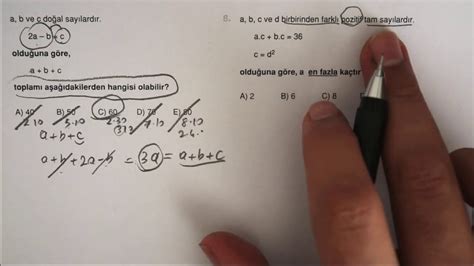 a, b ve c doğal sayılardır.
2a – b = c
olduğuna göre,
a + b + c
toplamı aşağıdakilerden hangisi olabilir?
A) 40 B) 50 C) 60 D) 70 E) 80
a+b+c
a+b+2a-b = 3a = a+b+c
8. a, b, c ve d birbirinden farklı pozitif tam sayılardır.
a.c + b.c = 36
c = d²
olduğuna göre, a en fazla kaçtır
A) 2 B) 6 C) 8